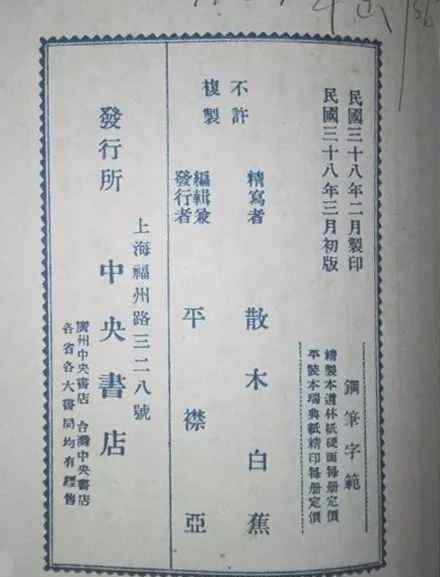 民國三十八年二月製印
民國三十八年三月初版
鋼筆字範
精製本道林紙硬面每册定價
平裝本瑞典紙精印每册定價
不許
複製
精寫者 散木白蕉
編輯兼
發行者 平襟亞
上海福州路三二八號
發行所 中央書店
廣州中央書店 台灣中央書店
各省各大書局均有經售